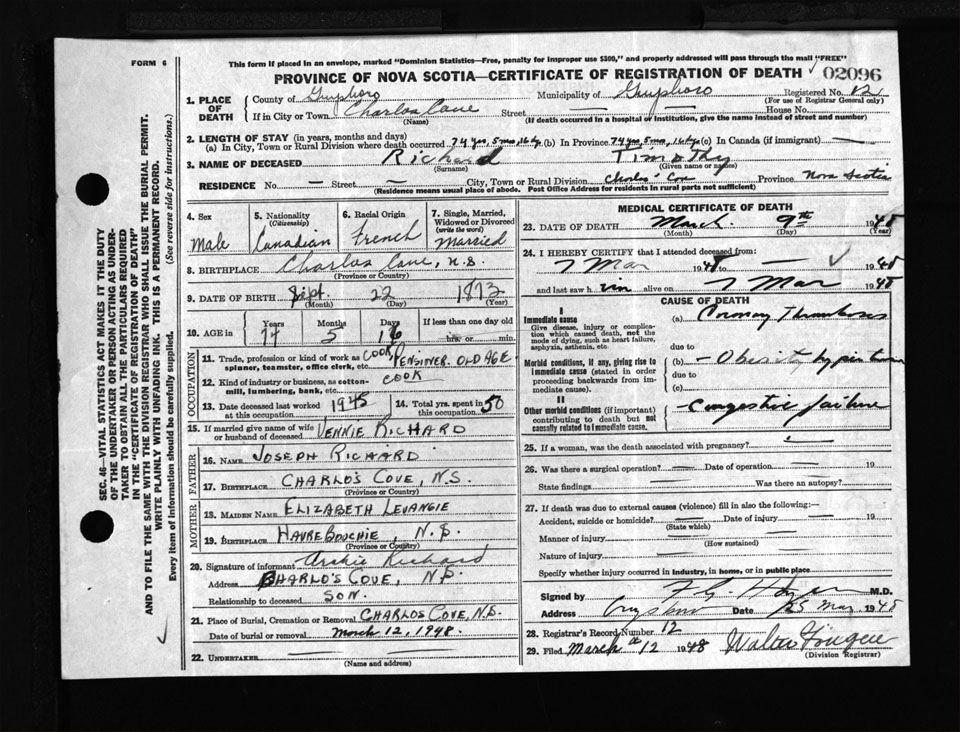 FORM 6
This form if placed in an envelope, marked "Dominion Statistics—Free, penalty for improper use $300," and properly addressed will pass through the mail "FREE"
PROVINCE OF NOVA SCOTIA—CERTIFICATE OF REGISTRATION OF DEATH 02096
1. PLACE OF DEATH County of Guysboro Municipality of Guysboro Registered No. 12
(For use of Registrar General only)
If in City or Town Charlos Cove Street — House No.
(Name) (If death occurred in a hospital or institution, give the name instead of street and number)
2. LENGTH OF STAY (in years, months and days)
(a) In City, Town or Rural Division where death occurred 74 yrs, 5 mos, 16 dys (b) In Province 74 yrs, 5 mos, 16 dys (c) In Canada (if immigrant) —
3. NAME OF DECEASED Richard Timothy
(Surname) (Given name or names)
RESIDENCE No. — Street — City, Town or Rural Division Charlos' Cove Province Nova Scotia
(Residence means usual place of abode. Post Office Address for residents in rural parts not sufficient)
4. Sex Male
5. Nationality (Citizenship) Canadian
6. Racial Origin French
7. Single, Married, Widowed or Divorced (write the word) Married
8. BIRTHPLACE Charlos Cove, N.S.
(Province or Country)
9. DATE OF BIRTH Sept. 22 1873
(Month) (Day) (Year)
10. AGE in Years Months Days If less than one day old
74 5 16 hrs. or min.
OCCUPATION
11. Trade, profession or kind of work as spinner, teamster, office clerk, etc. COOK PENSINER OLD AGE
12. Kind of industry or business, as cotton-mill, lumbering, bank, etc. COOK
13. Date deceased last worked at this occupation 1945
14. Total yrs. spent in this occupation 50
15. If married give name of wife or husband of deceased VENNIE RICHARD
FATHER
16. NAME JOSEPH RICHARD
17. BIRTHPLACE CHARLO'S COVE, N.S.
(Province or Country)
MOTHER
18. MAIDEN NAME ELIZABETH LEVANGIE
19. BIRTHPLACE HAVRE BOUCHIE, N.S.
(Province or Country)
20. Signature of informant Archie Richard
Address CHARLO'S COVE, N.S.
Relationship to deceased SON.
21. Place of Burial, Cremation or Removal CHARLOS COVE, N.S.
Date of burial or removal March 12, 1948.
22. UNDERTAKER
(Name and address)
MEDICAL CERTIFICATE OF DEATH
23. DATE OF DEATH March 9th 1948
(Month) (Day) (Year)
24. I HEREBY CERTIFY that I attended deceased from:
7 Mar 1948 to — 1948
and last saw him alive on 7 Mar 1948
CAUSE OF DEATH
I
Immediate cause
Give disease, injury or complication which caused death, not the mode of dying, such as heart failure, asphyxia, asthenia, etc.
(a) Coronary Thrombosis
due to
Morbid conditions, if any, giving rise to immediate cause (stated in order proceeding backwards from immediate cause).
(b) — Obesity hypertension
due to
(c)
II
Other morbid conditions (if important) contributing to death but not causally related to immediate cause.
Congestic failure
25. If a woman, was the death associated with pregnancy? —
26. Was there a surgical operation? — Date of operation — 19
State findings — Was there an autopsy?
27. If death was due to external causes (violence) fill in also the following:
Accident, suicide or homicide? — Date of injury — 19
(State which)
Manner of injury —
(How sustained)
Nature of injury —
Specify whether injury occurred in industry, in home, or in public place
Signed by M.D.
Address Date 25 Mar 1948
28. Registrar's Record Number 12
29. Filed March 12 1948 Walter Fougere
(Division Registrar)
SEC. 46—VITAL STATISTICS ACT MAKES IT THE DUTY
OF THE UNDERTAKER OR PERSON ACTING AS UNDERTAKER
TO OBTAIN ALL THE PARTICULARS REQUIRED
IN THE "CERTIFICATE OF REGISTRATION OF DEATH"
AND TO FILE THE SAME WITH THE DIVISION REGISTRAR WHO SHALL ISSUE THE BURIAL PERMIT.
WRITE PLAINLY WITH UNFADING INK. THIS IS A PERMANENT RECORD.
Every item of information should be carefully supplied. (See reverse side for instructions.)